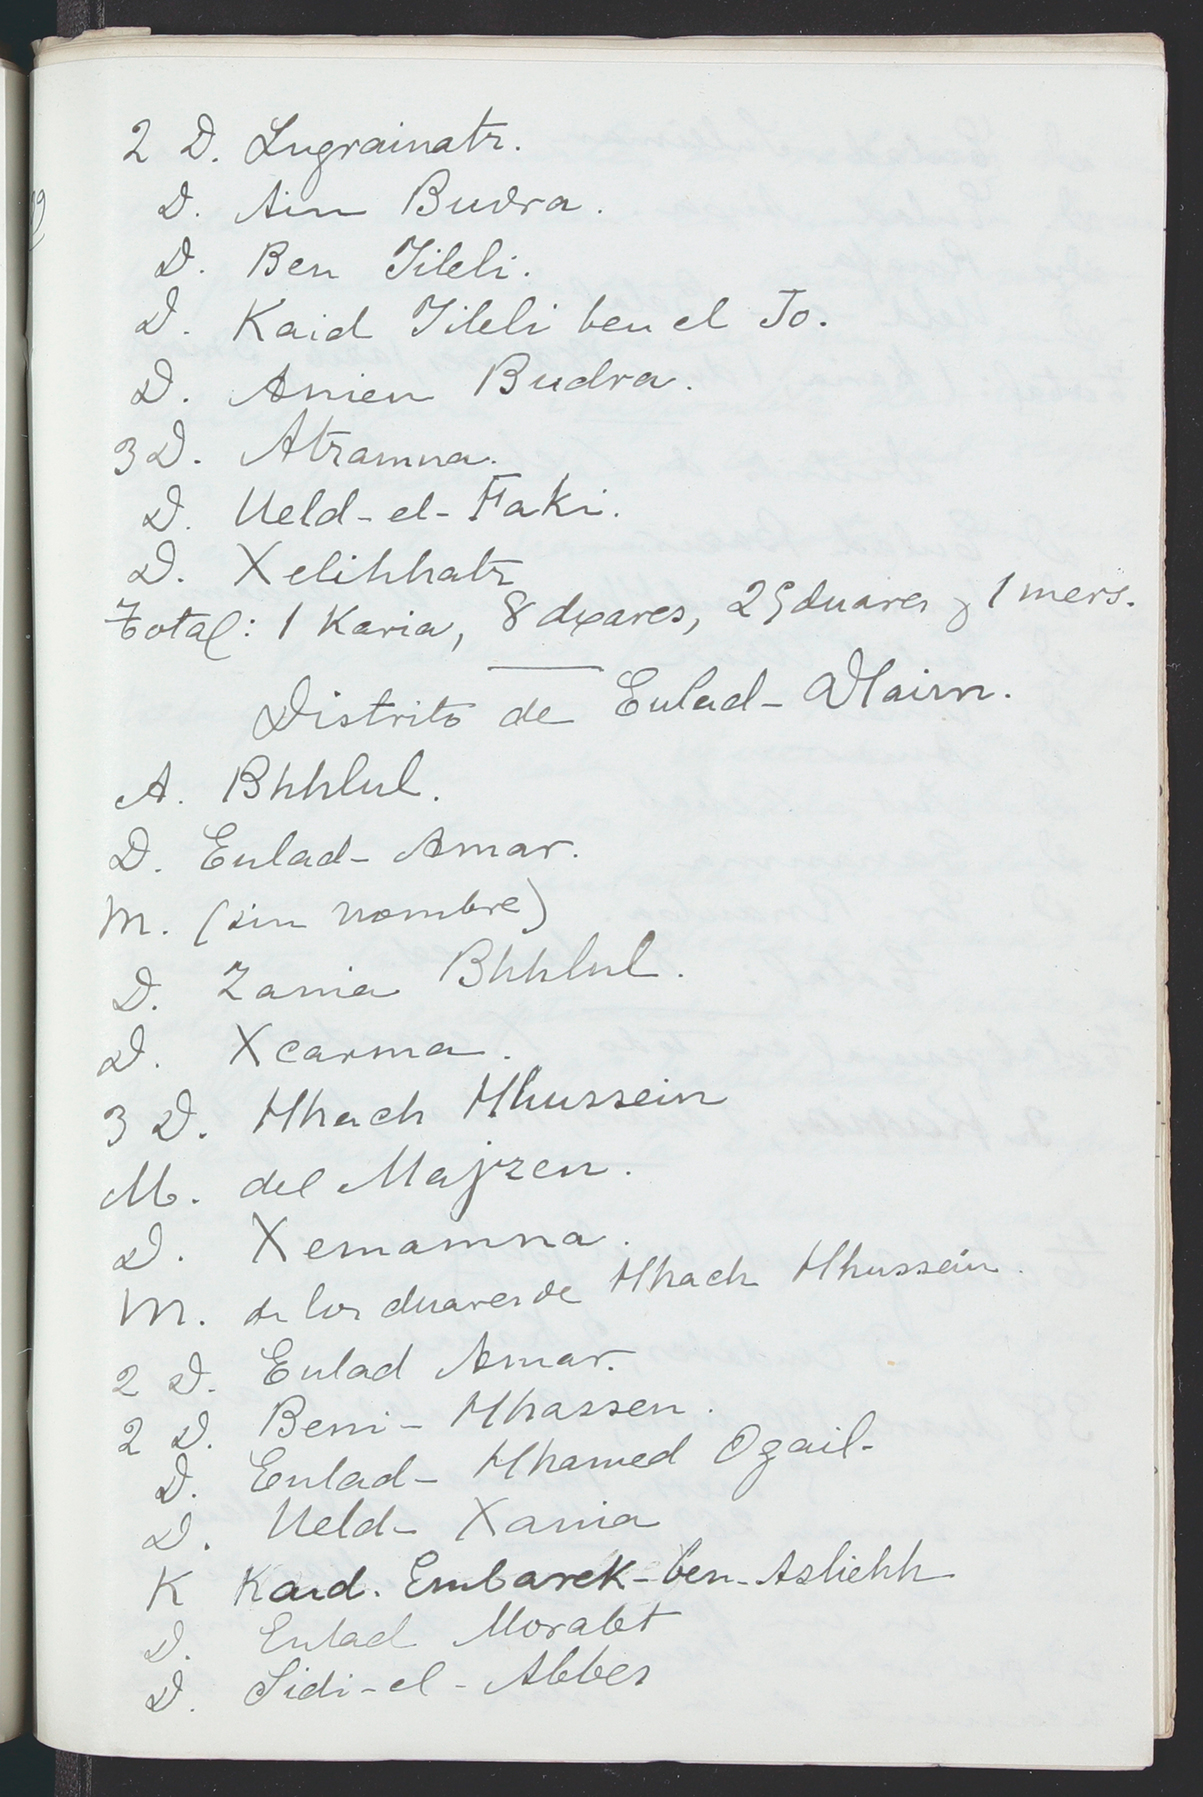 2 D. Lugrainatz.
D. Ain Budra.
D. Ben Jileli.
D. Kaid Jileli ben el To.
D. Amien Budra.
3 D. Atzamna.
D. Ueld-el-Faki.
D. Xelihhatz
Total: 1 Karia, 8 dxares, 29 duares y 1 mers.
Distrito de Eulad-Daim.
A. Bhhlul.
D. Eulad-Amar.
M. (sin nombre)
D. Zauia Bhhlul.
D. Xcarma.
3 D. Hhach Hhussein
M. del Majzen.
D. Xemamna.
M. de los duares de Hhach Hhussein.
2 D. Eulad Amar.
2 D. Beni-Hhassen.
D. Eulad-Hhamed Ozail-
D. Ueld- Xauia
K Kaid. Embarek-ben-Asliehh
D. Eulad Morabt
D. Sidi-el-Abbes